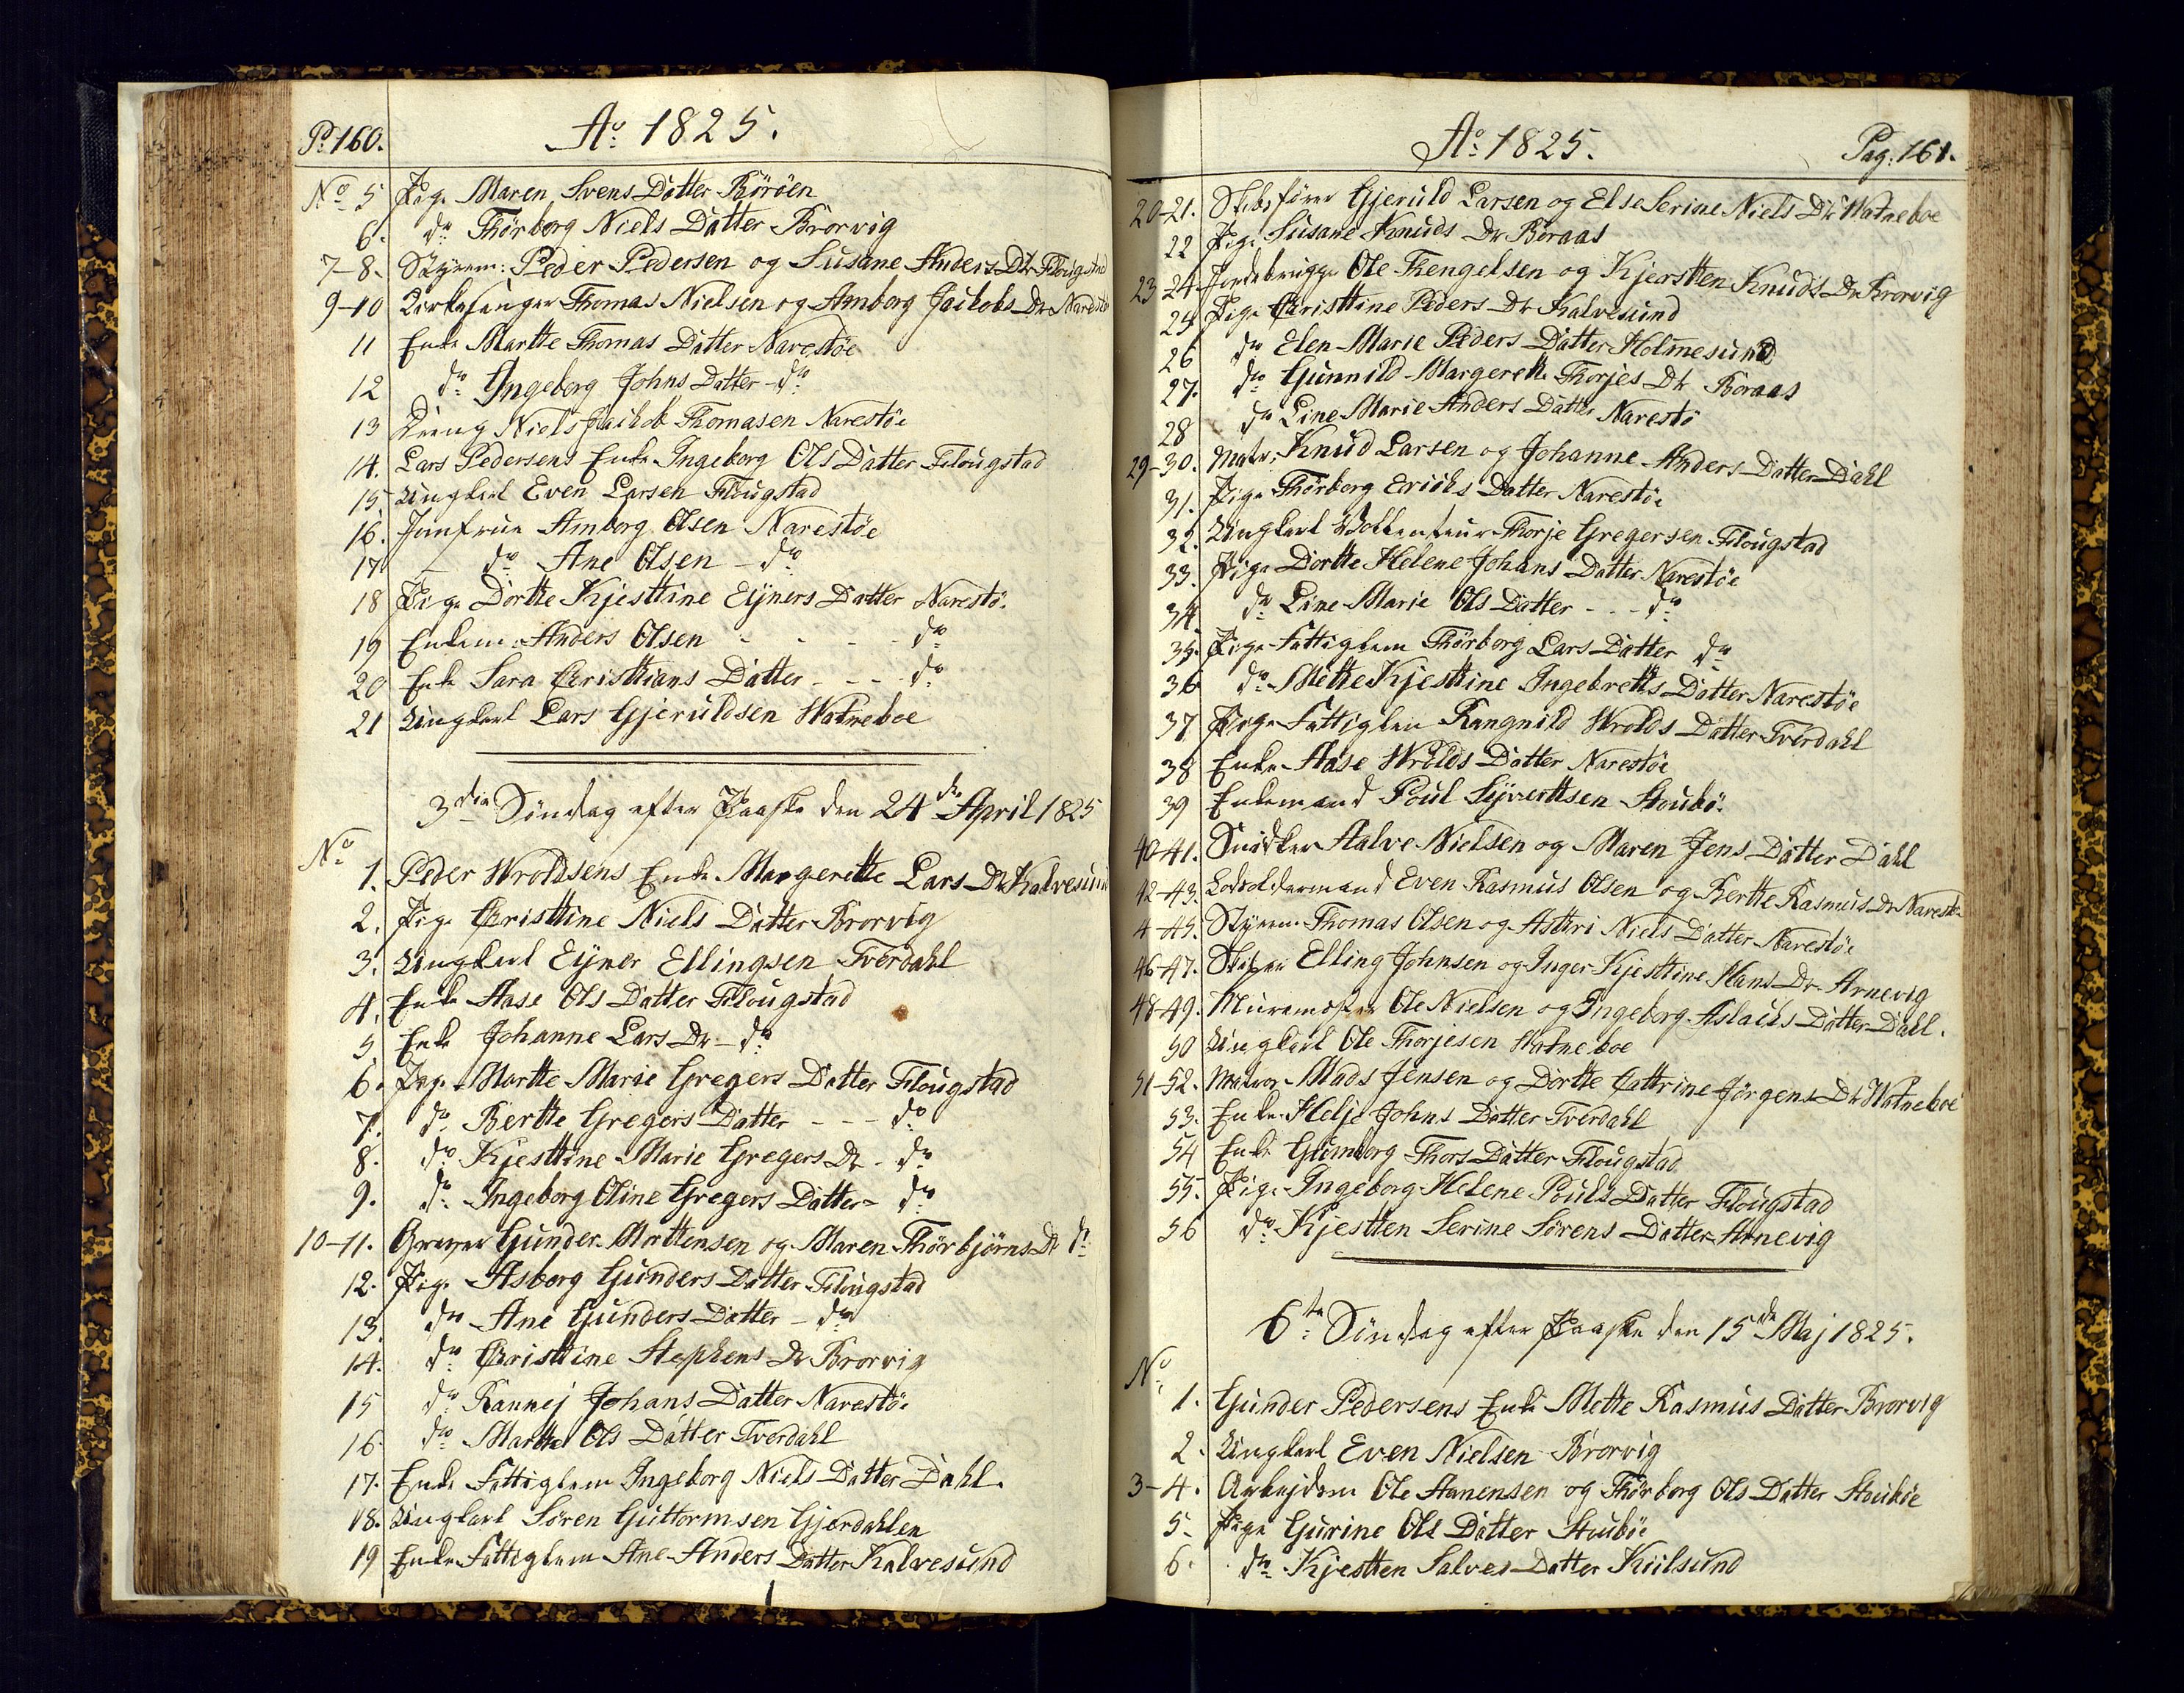 P: 160.
Ao: 1825.
No 5 Pige Maren Svens Datter Böröen
6. do Thörborg Niels Datter Brorvig
7-8. Styrm: Peder Pedersen og Susane Anders Dtr Flougstad
9-10 Kirkesanger Thomas Nielsen og Amborg Jackobs Dr Narestöe
11 Enke Martte Thomas Datter Narestöe
12 do Ingeborg Johns Datter - do
13 Dreng Niels Jackob Thomasen Narestöe
14. Lars Pedersens Enke Ingeborg Ols Datter Flougstad
15 Ungkarl Even Larsen Flougstad
16. Jomfrue Amborg Olsen Narestöe
17 do Ane Olsen - do
18 Pige Dortte Kjesttine Eyners Datter Narestö.
19 Enkem: Anders Olsen - - - - do
20 Enke Sara Christtians Datter - - - do
21 Ungkarl Lars Gjeruldsen Watneboe
3die Söndag efter Paaske den 24de April 1825
No
1. Peder Wroldsens Enke Margerette Lars Dtr Kalvesund
2. Pige Christtine Niels Datter Brorvig
3. Ungkarl Eyner Ellingsen Tverdahl
4. Enke Aase Ols Datter Flougstad
5 Enke Johanne Lars Dr - do
6. Pige Martte Marie Gregers Datter Flougstad
7. do Bertte Gregers Datter - - - do
8. do Kjesttine Marie Gregers Dr - do
9. do Ingeborg Oline Gregers Datter - do
10-11. Graver Gunder Morttensen og Maren Thörbjörns Dr do
12. Pige Asborg Gunders Datter Flougstad
13. do Ane Gunders Datter - do
14. do Christtine Stephens Dr Brorvig
15 do Rannej Johans Datter Narestöe
16. do Martte Ols Datter Tverdahl
17. Enke Fattiglem Ingeborg Niels Datter Dahl.
18. Ungkarl Sören Guttormsen Gjerdahlen
19 Enke Fattiglem Ane Anders Datter Kalvesund
Ao: 1825.
Pag. 161.
20-21. Skibsförer Gjeruld Larsen og Else Serine Niels Dtr Watneboe
22 Pige Susane Knuds Dr Boraas
23-24 Jordebrugge Ole Thengelsen og Kjerstten Knuds Dr Brorvig
25 Pige Christtine Peders Dr Kalvesund
26 do Elen Marie Peders Datter Holmesund
27. do Gunnild Margerette Thorjes Dtr Boraas
28 do Line Marie Anders Datter Narestö
29-30. Matr: Knud Larsen og Johanne Anders Datter Dahl
31. Pige Thörborg Erichs Datter Narestöe
32. Ungkarl Vollenteur Thorje Gregersen Flougstad
33. Pige Dortte Helene Johans Datter Narestöe
34 do Line Marie Ols Datter - - - do
35. Pige Fattiglem Thörborg Lars Datter do
36 do Mette Kjesttine Ingebretts Datter Narestöe
37 Pige Fattiglem Rangnild Wrolds Datter Tverdahl
38 Enke Aase Wrolds Datter Narestöe
39 Enkemand Poul Syverttsen Stouböe
40-41. Snidker Halve Nielsen og Maren Jens Datter Dahl
42-43. Lodsoldermand Even Rasmus Olsen og Bertte Rasmus Dr Narestöe
4-45. Styrm: Thomas Olsen og Asttri Niels Datter Narestöe
46-47. Skiper Elling Johnsen og Inger Kjesttine Hans Dr Arnevig
48-49. Muremester Ole Nielsen og Ingeborg Aslachs Datter Dahl.
50 Ungkarl Ole Thorjesen Watneboe
51-52. Matros Mads Jensen og Dortte Cattrine Jörgens Dtr Watneboe
53. Enke Helje Johns Datter Tverdahl
54 Enke Gumborg Thors Datter Flougstad
55. Pige Ingeborg Helene Pouls Datter Flougstad
56 do Kjestten Serine Sörens Datter Arnevig
6te Söndag efter Paaske den 15de Maj 1825.
No
1. Gunder Pedersens Enke Mette Rasmus Datter Brorvig
2. Ungkarl Even Nielsen Brorvig
3-4. Arbejdsm Ole Aanensen og Thörborg Ols Datter Stouböe
5. Pige Gurine Ols Datter Stouböe
6. do Kjestten Salves Datter Kiilsund